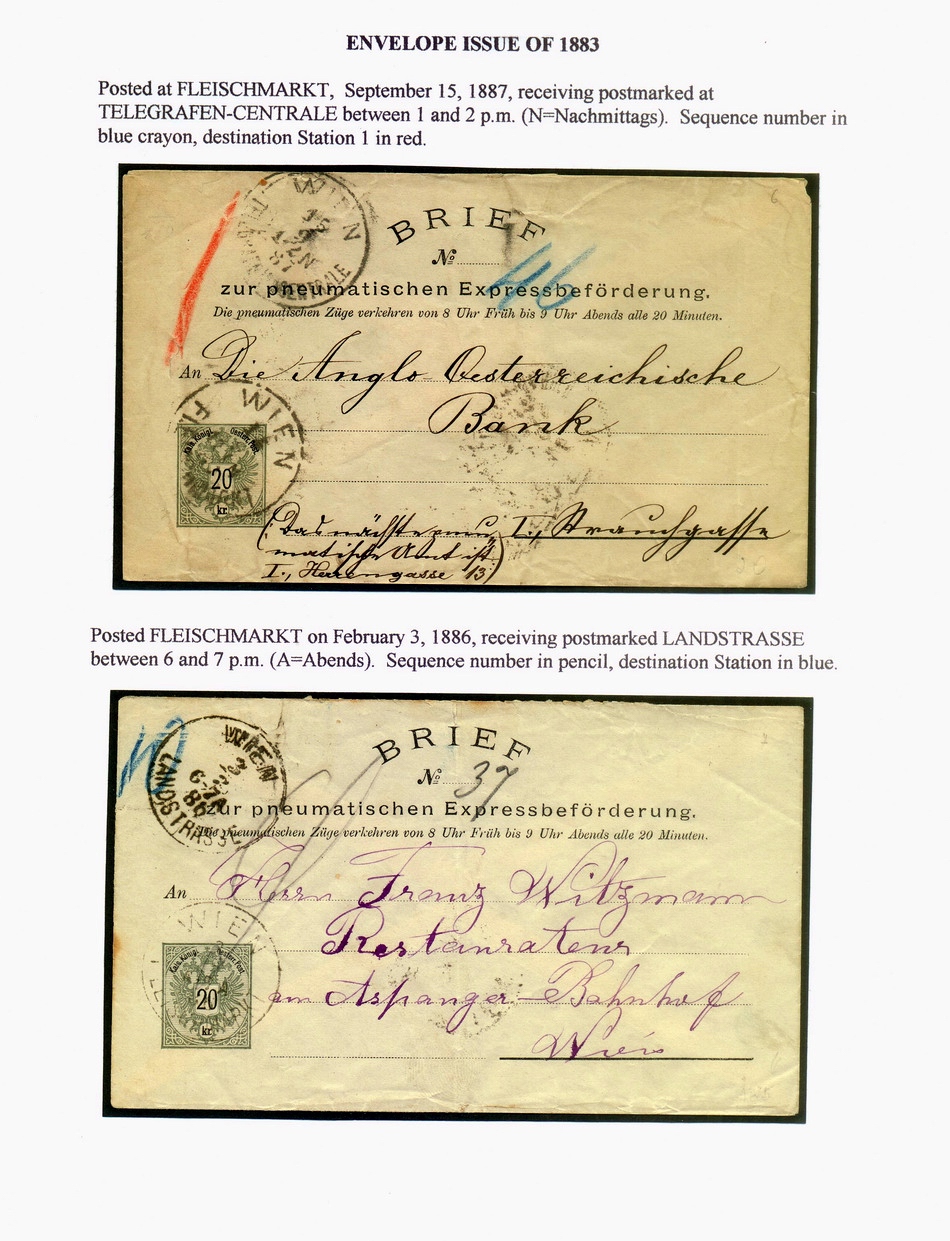 ENVELOPE ISSUE OF 1883
Posted at FLEISCHMARKT, September 15, 1887, receiving postmarked at
TELEGRAFEN-CENTRALE between 1 and 2 p.m. (N=Nachmittags). Sequence number in
blue crayon, destination Station 1 in red.
WIEN
BRIEF
№
46
zur pneumatischen Expressbeförderung.
Die pneumatischen Züge verkehren von 8 Uhr Früh bis 9 Uhr Abends alle 20 Minuten.
An Die Anglo-Oesterreichische
Bank
WIEN
20
kr.
(Das nächste pneu-
matische Amt ist
I., Herrengasse 13)
I., Strauchgasse
Posted FLEISCHMARKT on February 3, 1886, receiving postmarked LANDSTRASSE
between 6 and 7 p.m. (A=Abends). Sequence number in pencil, destination Station in blue.
WIEN
LANDSTRASSE
BRIEF
№ 37
zur pneumatischen Expressbeförderung.
Die pneumatischen Züge verkehren von 8 Uhr Früh bis 9 Uhr Abends alle 20 Minuten.
An Herrn Franz Witzmann
Restaurateur
am Aspanger-Bahnhof
Wien
WIEN
20
kr.